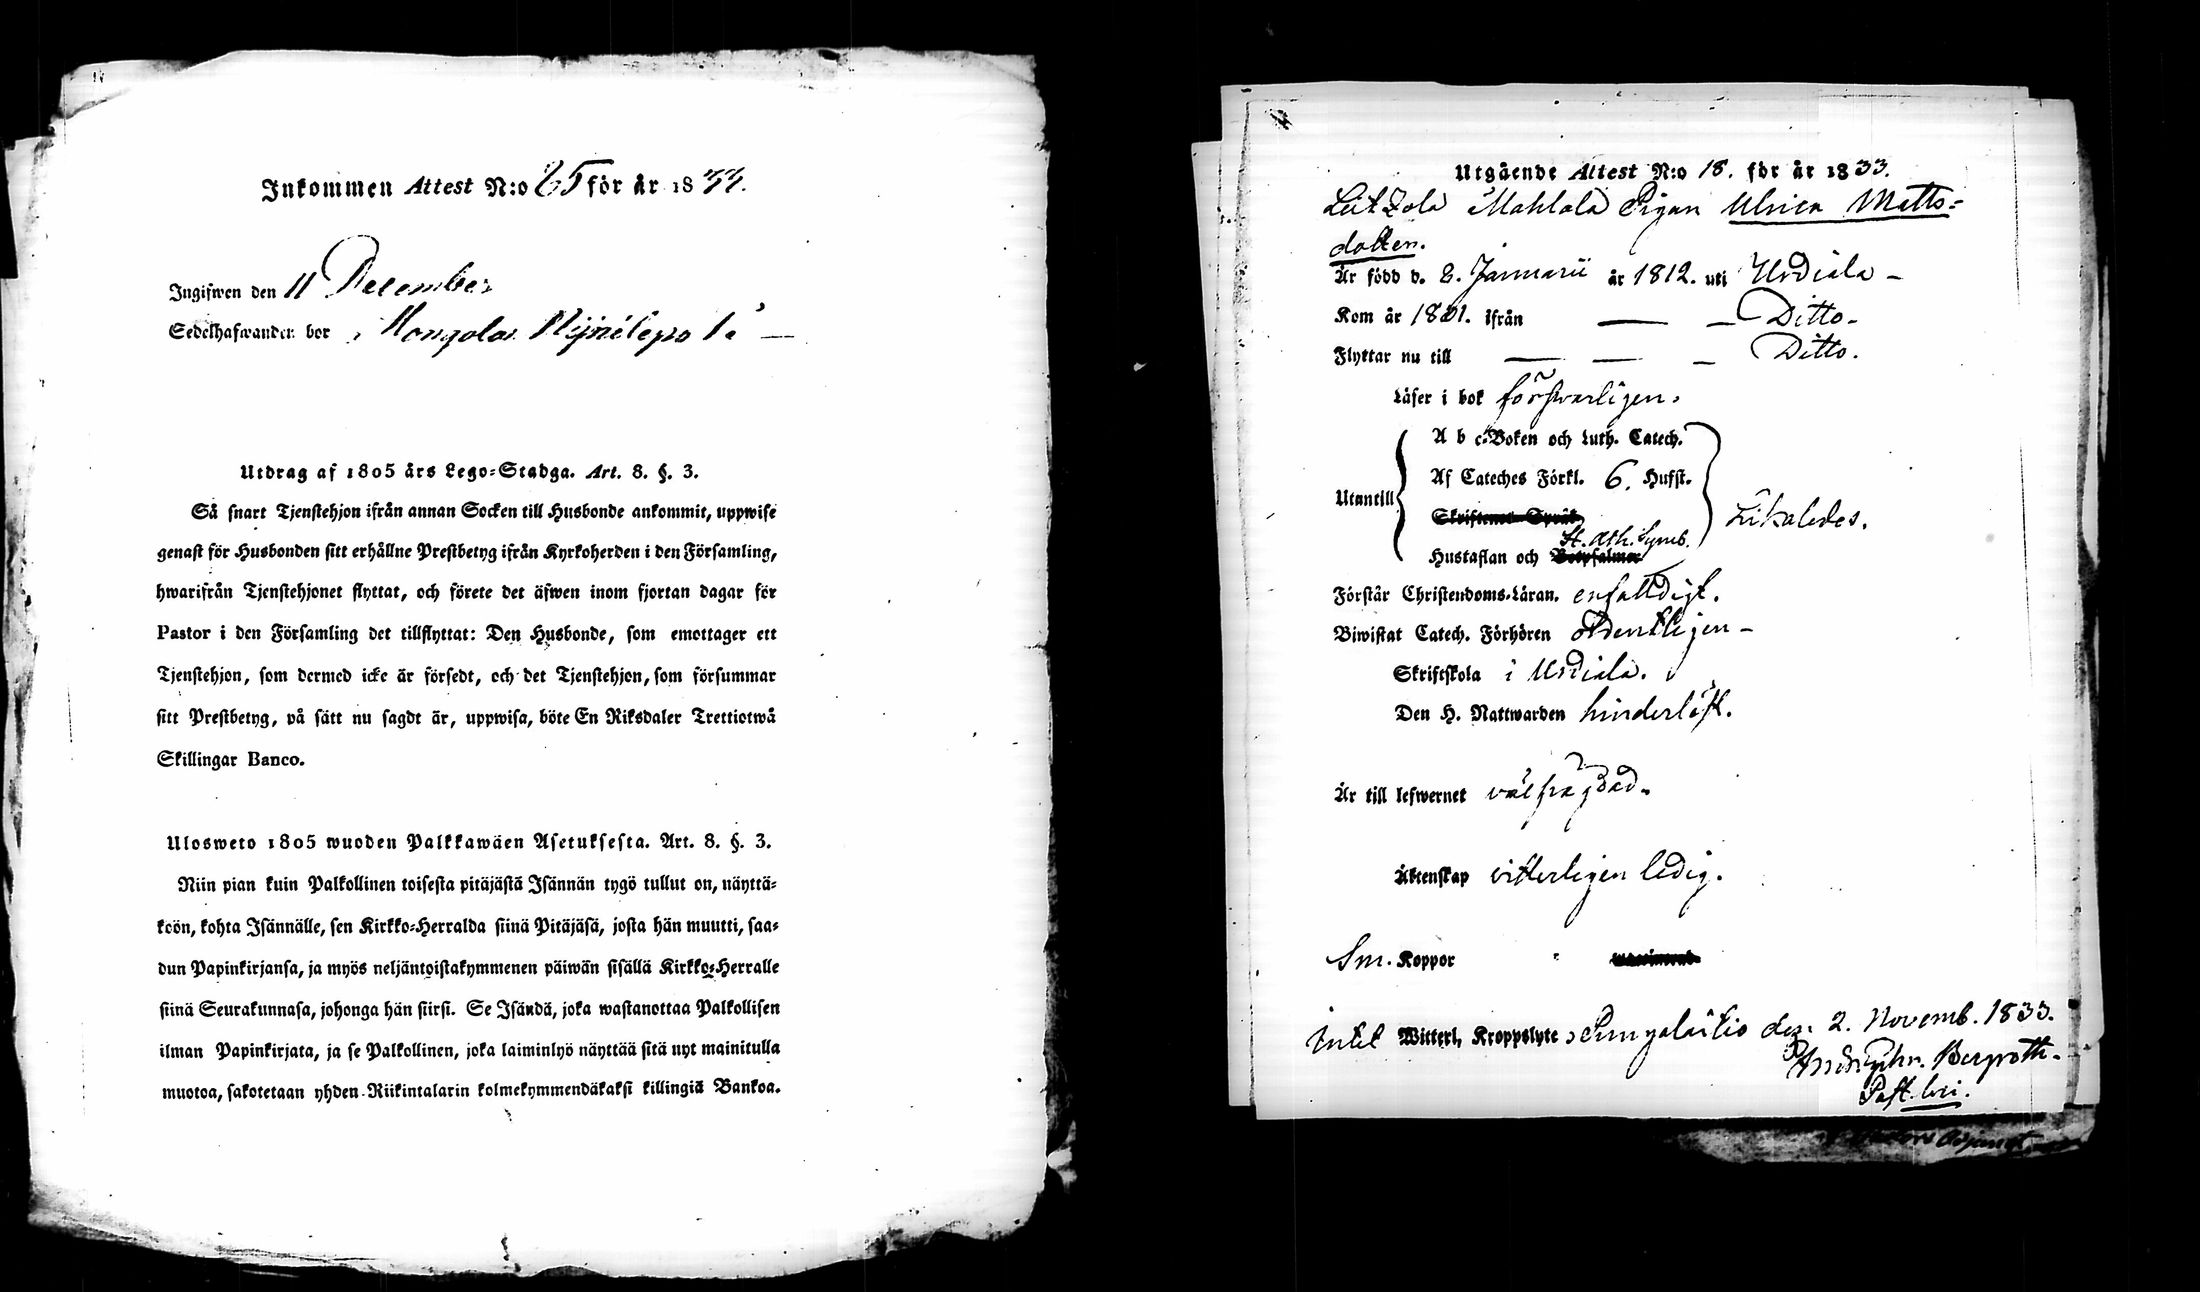 Inkommen Attest N:o 85 för år 1833.
Ingifwen den 11 December
Sedelhafwanden bor i
Utdrag af 1805 års Lego-Stadga. Art. 8. §. 3.
Så snart Tjenstehjon ifrån annan Socken till Husbonde ankommit, uppwise
genast för Husbonden sitt erhållne Prestbetyg ifrån Kyrkoherden i den Församling,
hwarifrån Tjenstehjonet flyttat, och förete det äfwen inom fjortan dagar för
Pastor i den Församling det tillflyttat: Den Husbonde, som emottager ett
Tjenstehjon, som dermed icke är försedt, och det Tjenstehjon, som försummar
sitt Prestbetyg, på sätt nu sagdt är, uppwisa, böte En Riksdaler Trettiotwå
Skillingar Banco.
Ulosweto 1805 wuoden Palkkawäen Asetuksesta. Art. 8. §. 3.
Niin pian kuin Palkollinen toisesta pitäjästä Isännän tygö tullut on, näyttä-
köön, kohta Isännälle, sen Kirkko-Herralda siinä Pitäjäsä, josta hän muutti, saa-
dun Papinkirjansa, ja myös neljäntoistakymmenen päiwän sisällä Kirkko-Herralle
siinä Seurakunnasa, johonga hän siirsi. Se Isändä, joka wastanottaa Palkollisen
ilman Papinkirjata, ja se Palkollinen, joka laiminlyö näyttää sitä nyt mainitulla
muotoa, sakotetaan yhden Riikintalarin kolmekymmendäkaksi killingiä Bankoa.
Utgående Attest N:o 18. för år 1833.
Mahlala Pigan Ulrica Matts-
dotter.
Är född d. 8. Januarii år 1812. uti Urdiala –
Kom år ifrån — – Ditto –
Flyttar nu till — — – Ditto.
Läser i bok försvarligen.
A b c-Boken och Luth. Catech.
Af Cateches Förkl. 6. Hufst.
Utantill
Skriftenes Språk
Likaledes.
St. Ath. Symb.
Hustaflan och Botpsalmer
Förstår Christendoms-Läran. enfaldigt.
Biwistat Catech. Förhören ordentligen –
Skriftskola i Urdiala.
Den H. Nattwarden hinderlöst.
Är till lefwernet välfrägdad.
Äktenskap vitterligen ledig.
Sm. Koppor
intet Witterl. Kroppslyte; Pungalaitio den 2. Novemb. 1833.
Bergroth.
Past. loci.
Adjunct